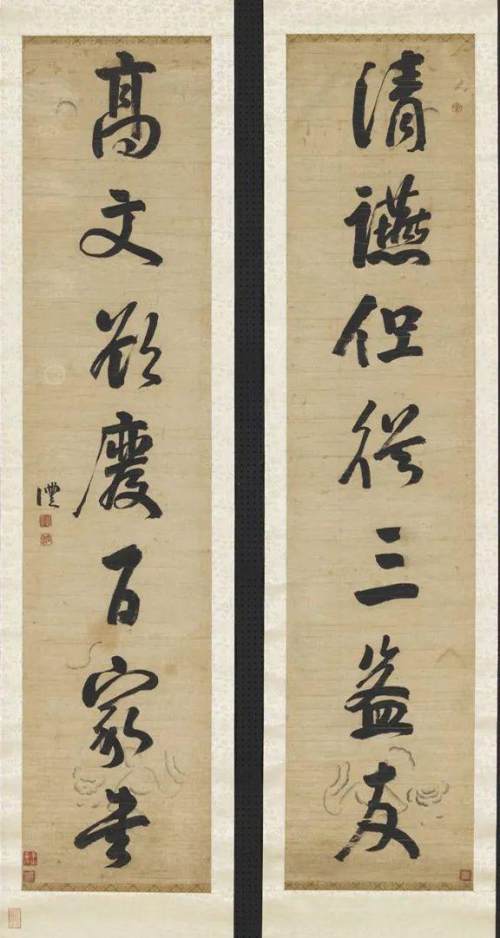 清讌但從三益友
高文欲廢百家書
澧